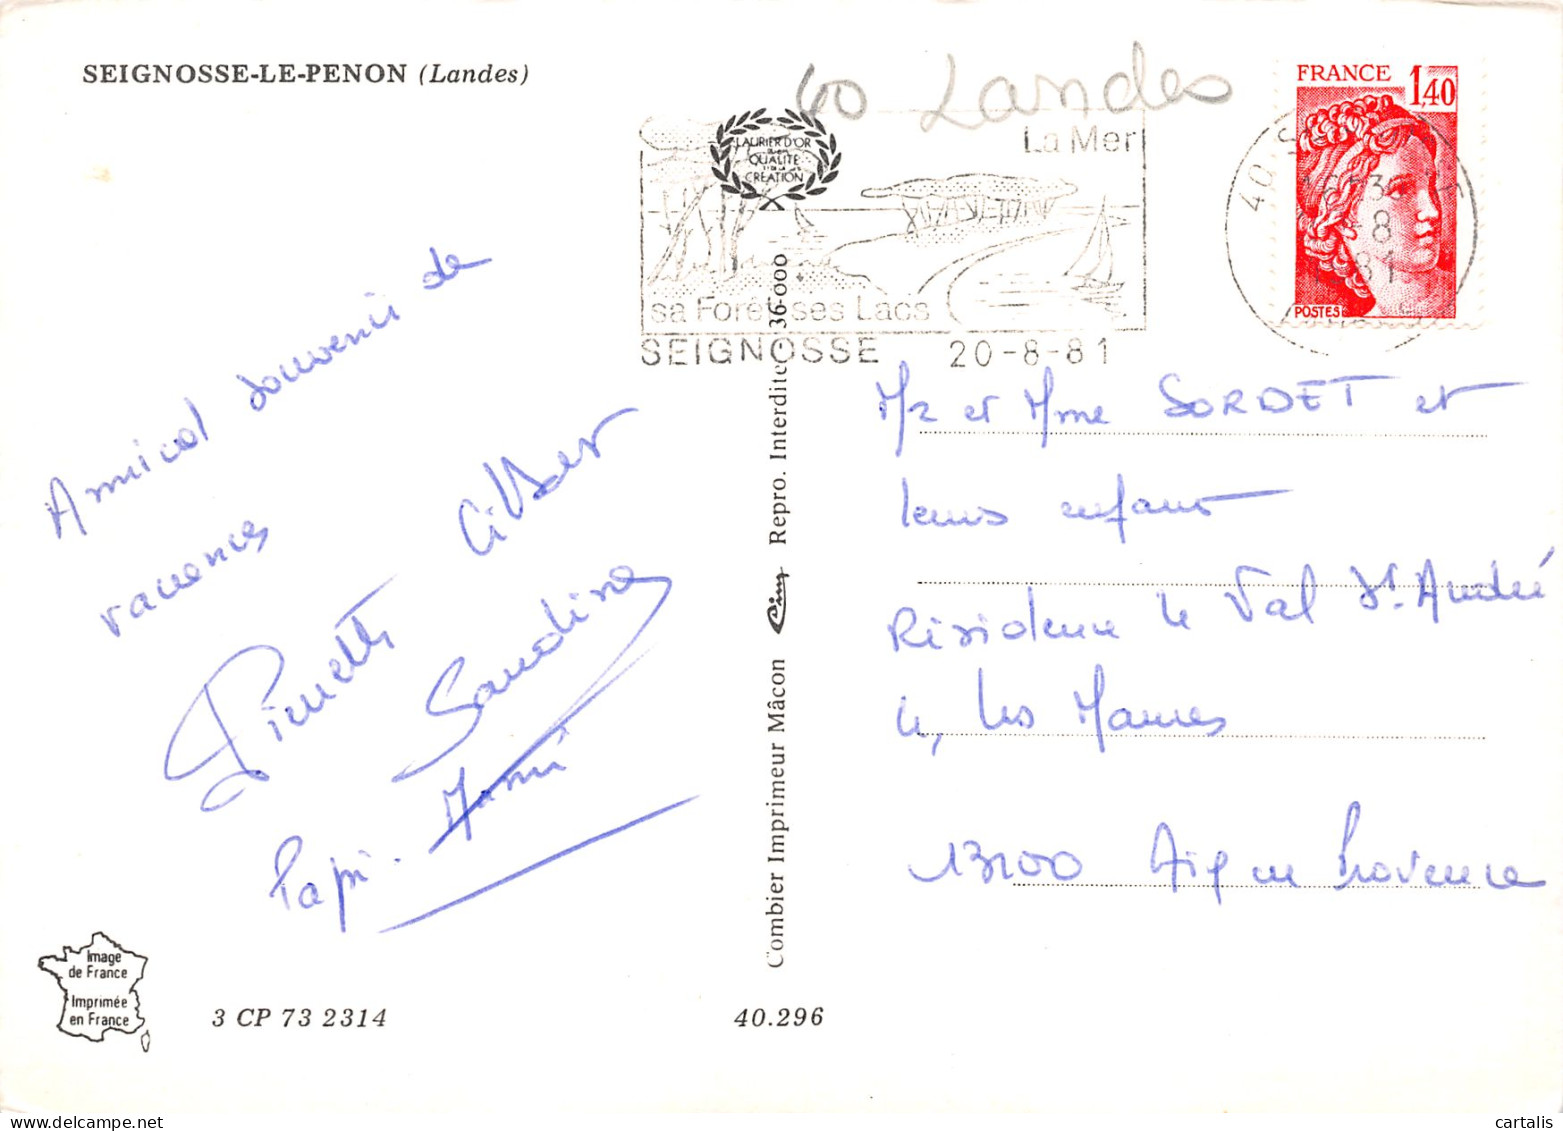 SEIGNOSSE-LE-PENON (Landes)
40 Landes
FRANCE 1,40
POSTES
LAURIER D'OR
QUALITÉ
CRÉATION
La Mer
sa Forêt ses Lacs
SEIGNOSSE 20-8-81
40
-8
81
Amical souvenir de
vacances
Gilbert
Pierrette
Sandrine
Papi - Mami
Combier Imprimeur Mâcon Cim Repro. Interdite 36-000
Mr et Mme SORDET et
leurs enfants
Résidence le Val St André
4, Les Maures
13100 Aix en Provence
Image
de France
Imprimée
en France
3 CP 73 2314
40.296
cartalis